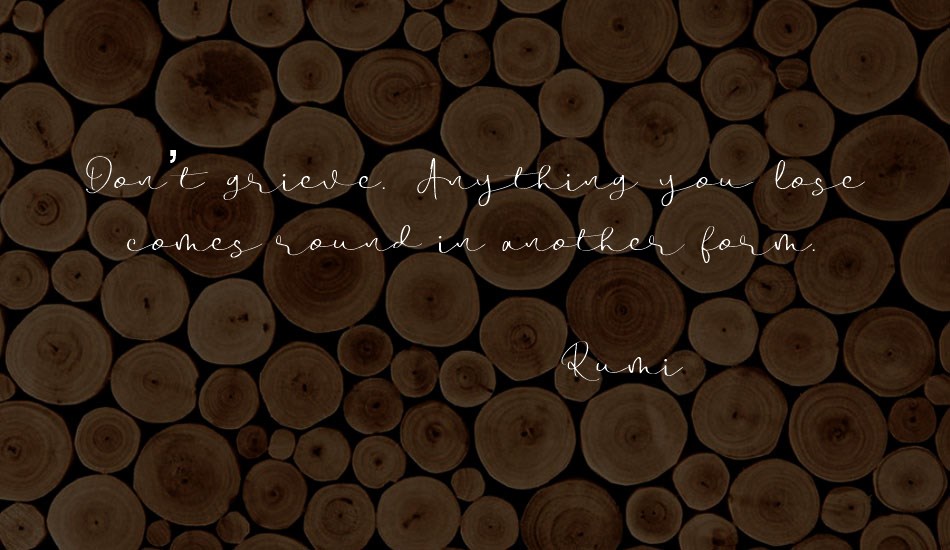 Don't grieve. Anything you lose
comes round in another form.
Rumi